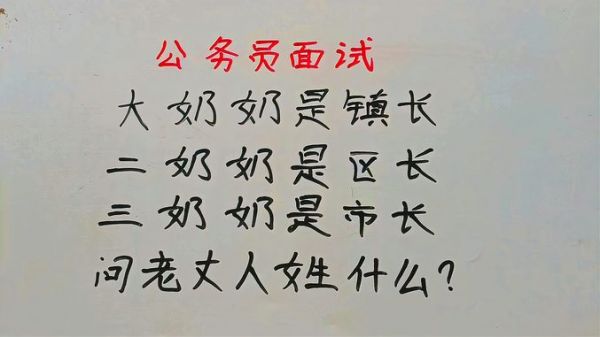 公务员面试
大奶奶是镇长
二奶奶是区长
三奶奶是市长
问老丈人姓什么?